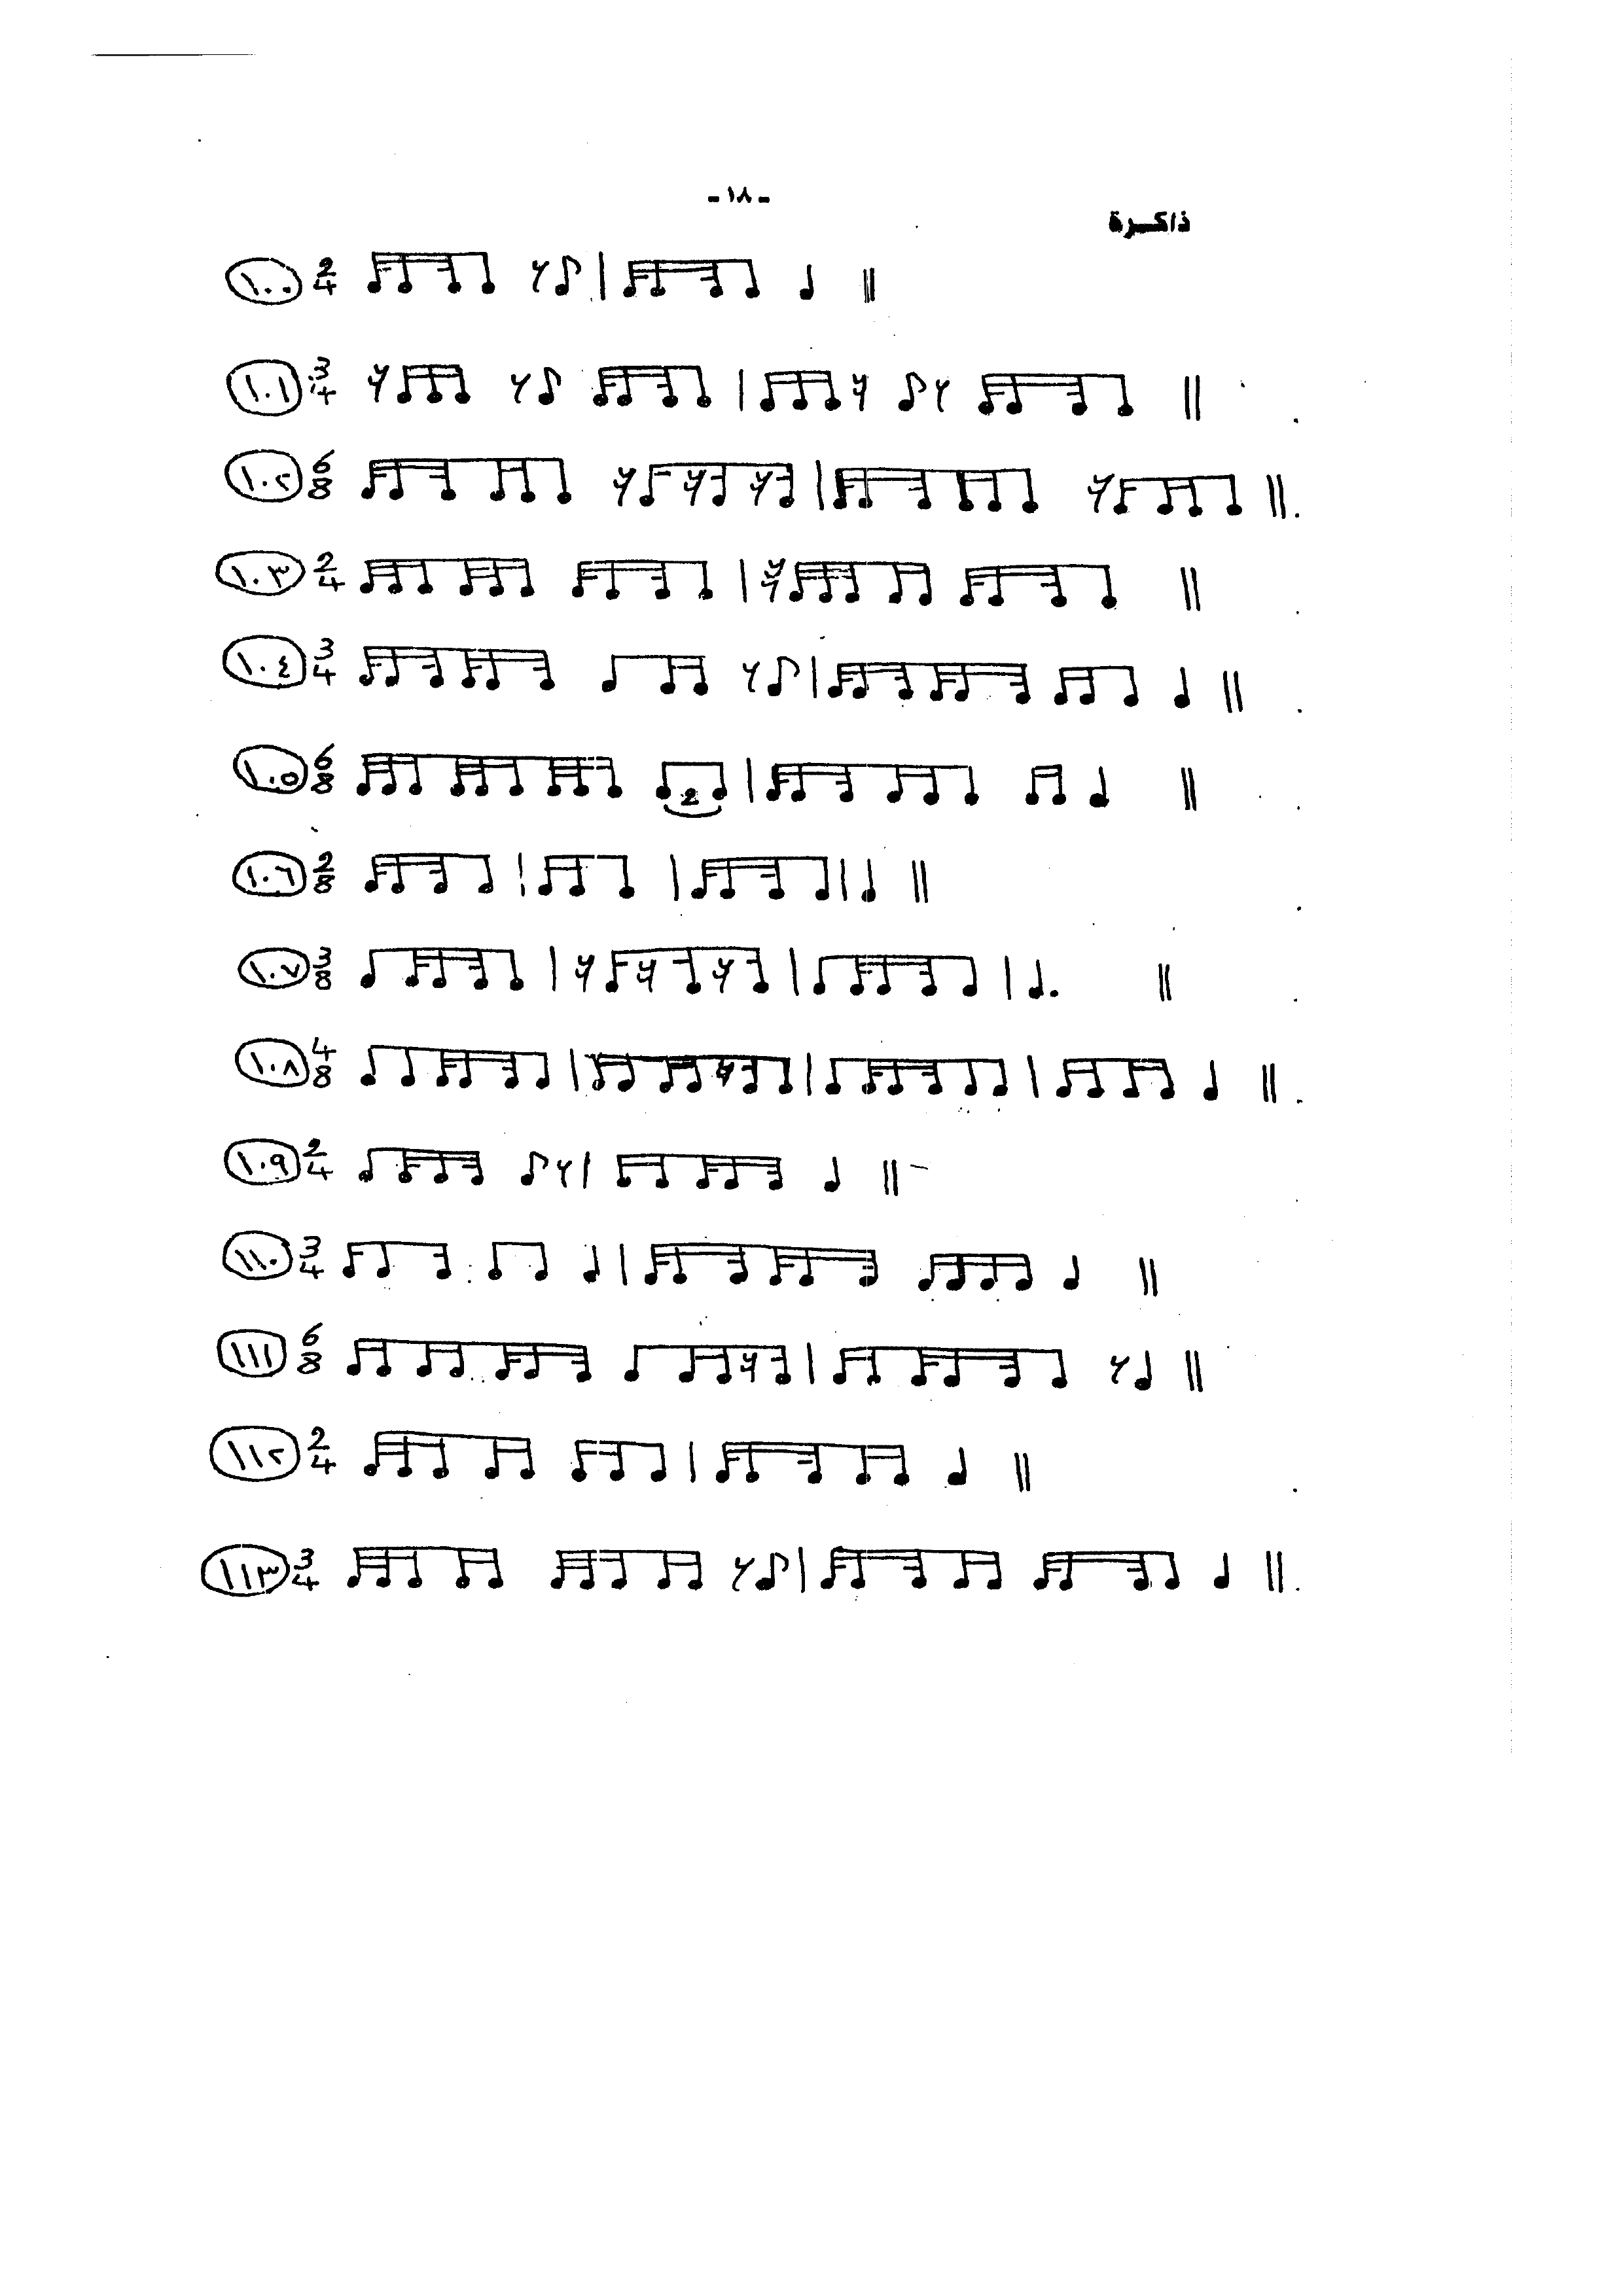 - ١٨ -
ذاكرة
١٠٠ 2/4
١٠١ 3/4
١٠٢ 6/8
١٠٣ 2/4
١٠٤ 3/4
١٠٥ 6/8 2
١٠٦ 2/8
١٠٧ 3/8
١٠٨ 4/8
١٠٩ 2/4
١١٠ 3/4
١١١ 6/8
١١٢ 2/4
١١٣ 3/4